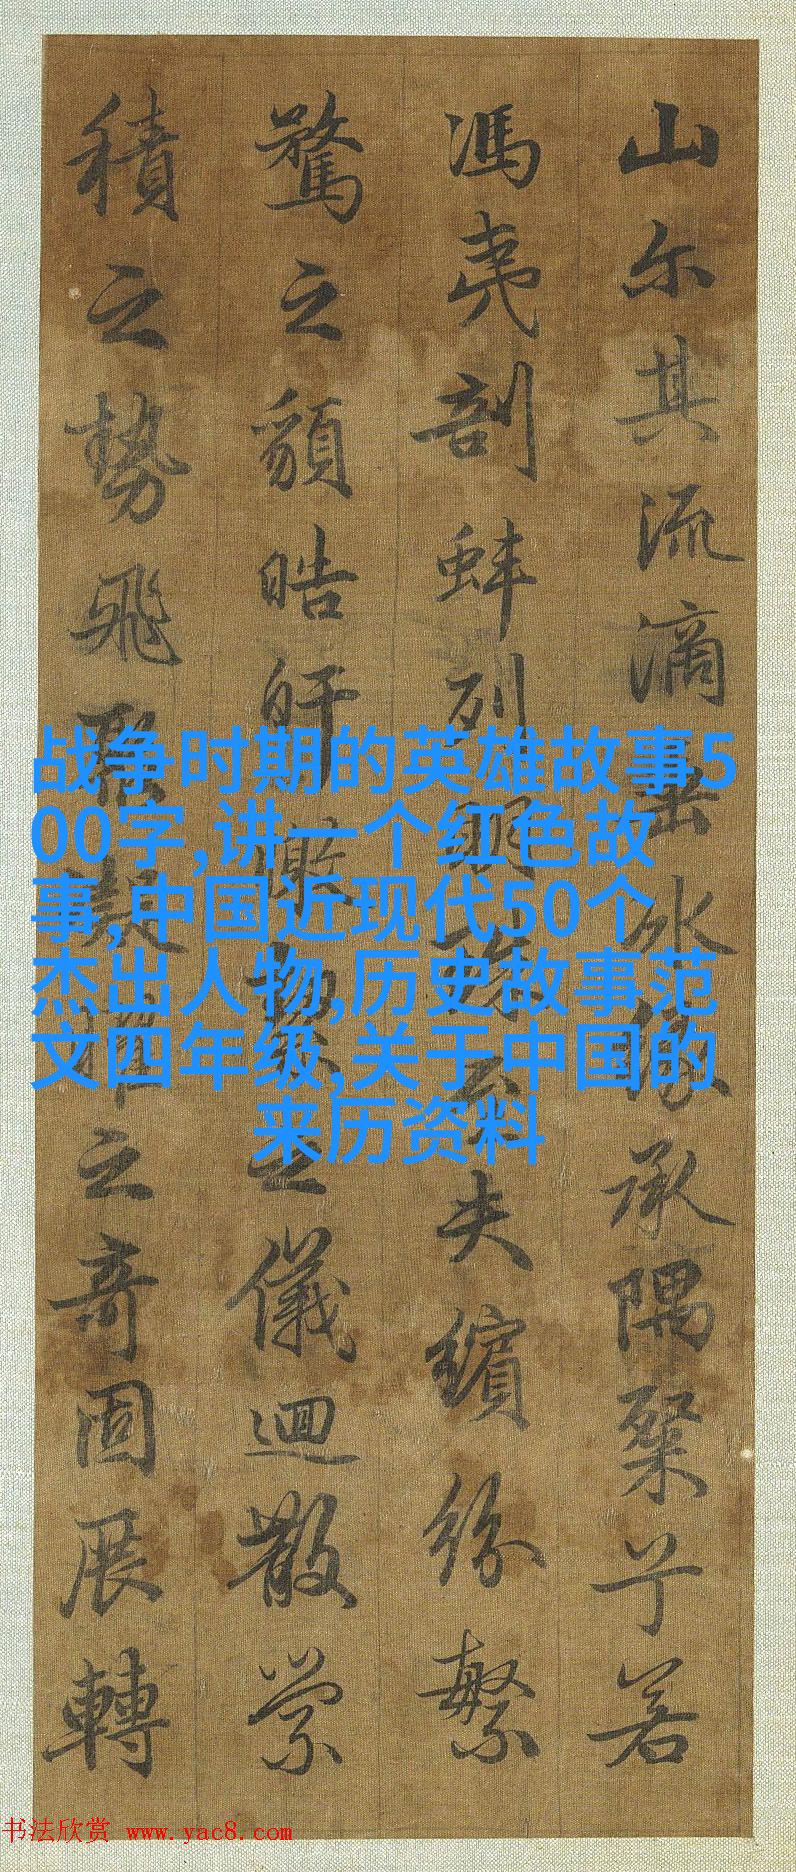 山尔其流滴垂冰缘承隅粲兮若
馮夷剖蚌列明珠至夫繽紛繁
騖之貌皓旰曒潔之儀迴散縈
積之勢飛聚凝曜之奇固展轉
战争时期的英雄故事5
00字,讲一个红色故
事,中国近现代50个
杰出人物,历史故事范
文四年级,关于中国的
来历资料
书法欣赏 www.yac8.com